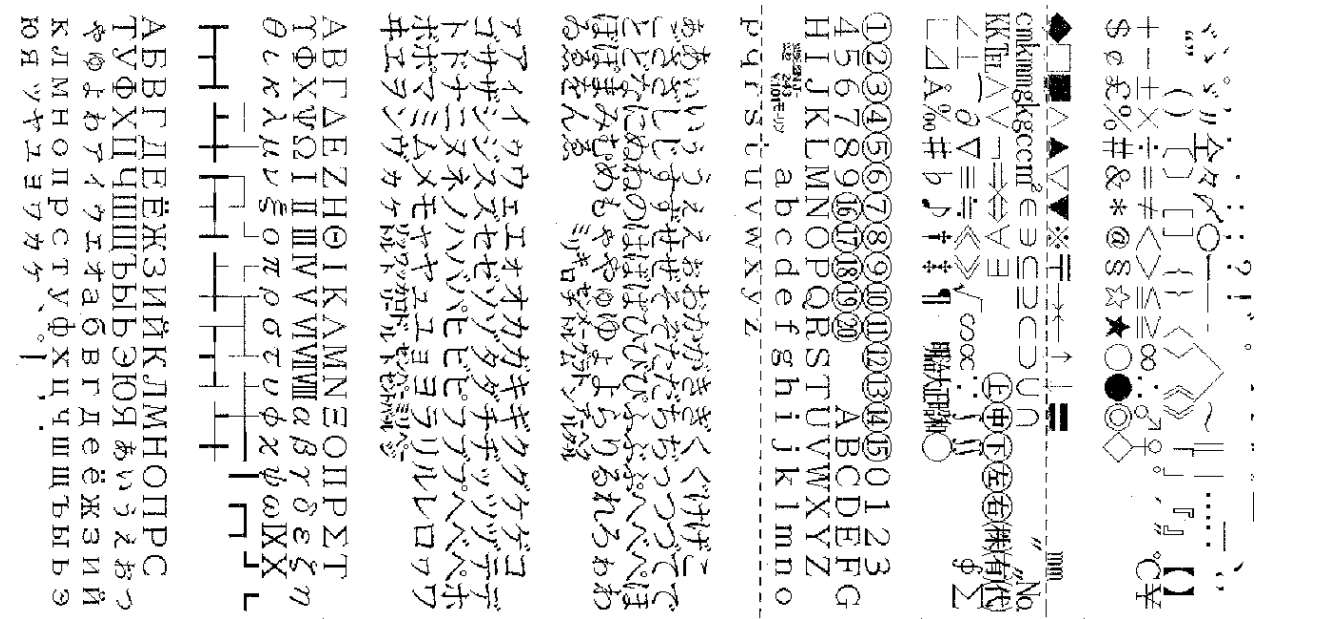 ＋－±×÷＝≠＜＞≦≧∞∴♂♀°′″℃￥
＄￠￡％＃＆＊＠§☆★○●◎◇
◆□■△▲▽▼※〒→←↑↓〓 mm
cmkmmgkgccm²∈∋⊆⊇⊂⊃∪∩ №
KKTEL∧∨¬⇒⇔∀∃ ㊤㊥㊦㊧㊨㈱㈲㈹
∠⊥⌒∂∇≡≒≪≫√∽∝∵∫∬ ∮∑
∟⊿Å‰♯♭♪†‡¶ 明治大正昭和◯
①②③④⑤⑥⑦⑧⑨⑩⑪⑫⑬⑭⑮0123
456789⑯⑰⑱⑲⑳ ABCDEFG
HIJKLMNOPQRSTUVWXYZ
abcdefghijklmno
pqrstuvwxyz
ぁあぃいぅうぇえぉおかがきぎくぐけげこ
ごさざしじすずせぜそぞただちぢっつづてで
とどなにぬねのはばぱひびぴふぶぷへべぺほ
ぼぽまみむめもゃやゅゆょよらりるれろゎわ
ゐゑをん
ァアィイゥウェエォオカガキギクグケゲコ
ゴサザシジスズセゼソゾタダチヂッツヅテデ
トドナニヌネノハバパヒビピフブプヘベペホ
ボポマミムメモャヤュユョヨラリルレロヮワ
ヰヱヲンヴヵヶ
ΑΒΓΔΕΖΗΘΙΚΛΜΝΞΟΠΡΣΤ
ΥΦΧΨΩⅠⅡⅢⅣⅤⅥⅦⅧαβγδεζη
θικλμνξοπρστυφχψωⅨⅩ
АБВГДЕЁЖЗИЙКЛМНОПРС
ТУФХЦЧШЩЪЫЬЭЮЯぁぃぅぇぉっ
ゃゅょゎァィゥェォабвгдеёжзий
клмнопрстуфхцчшщъыьэ
юяッャュョヮヵヶ